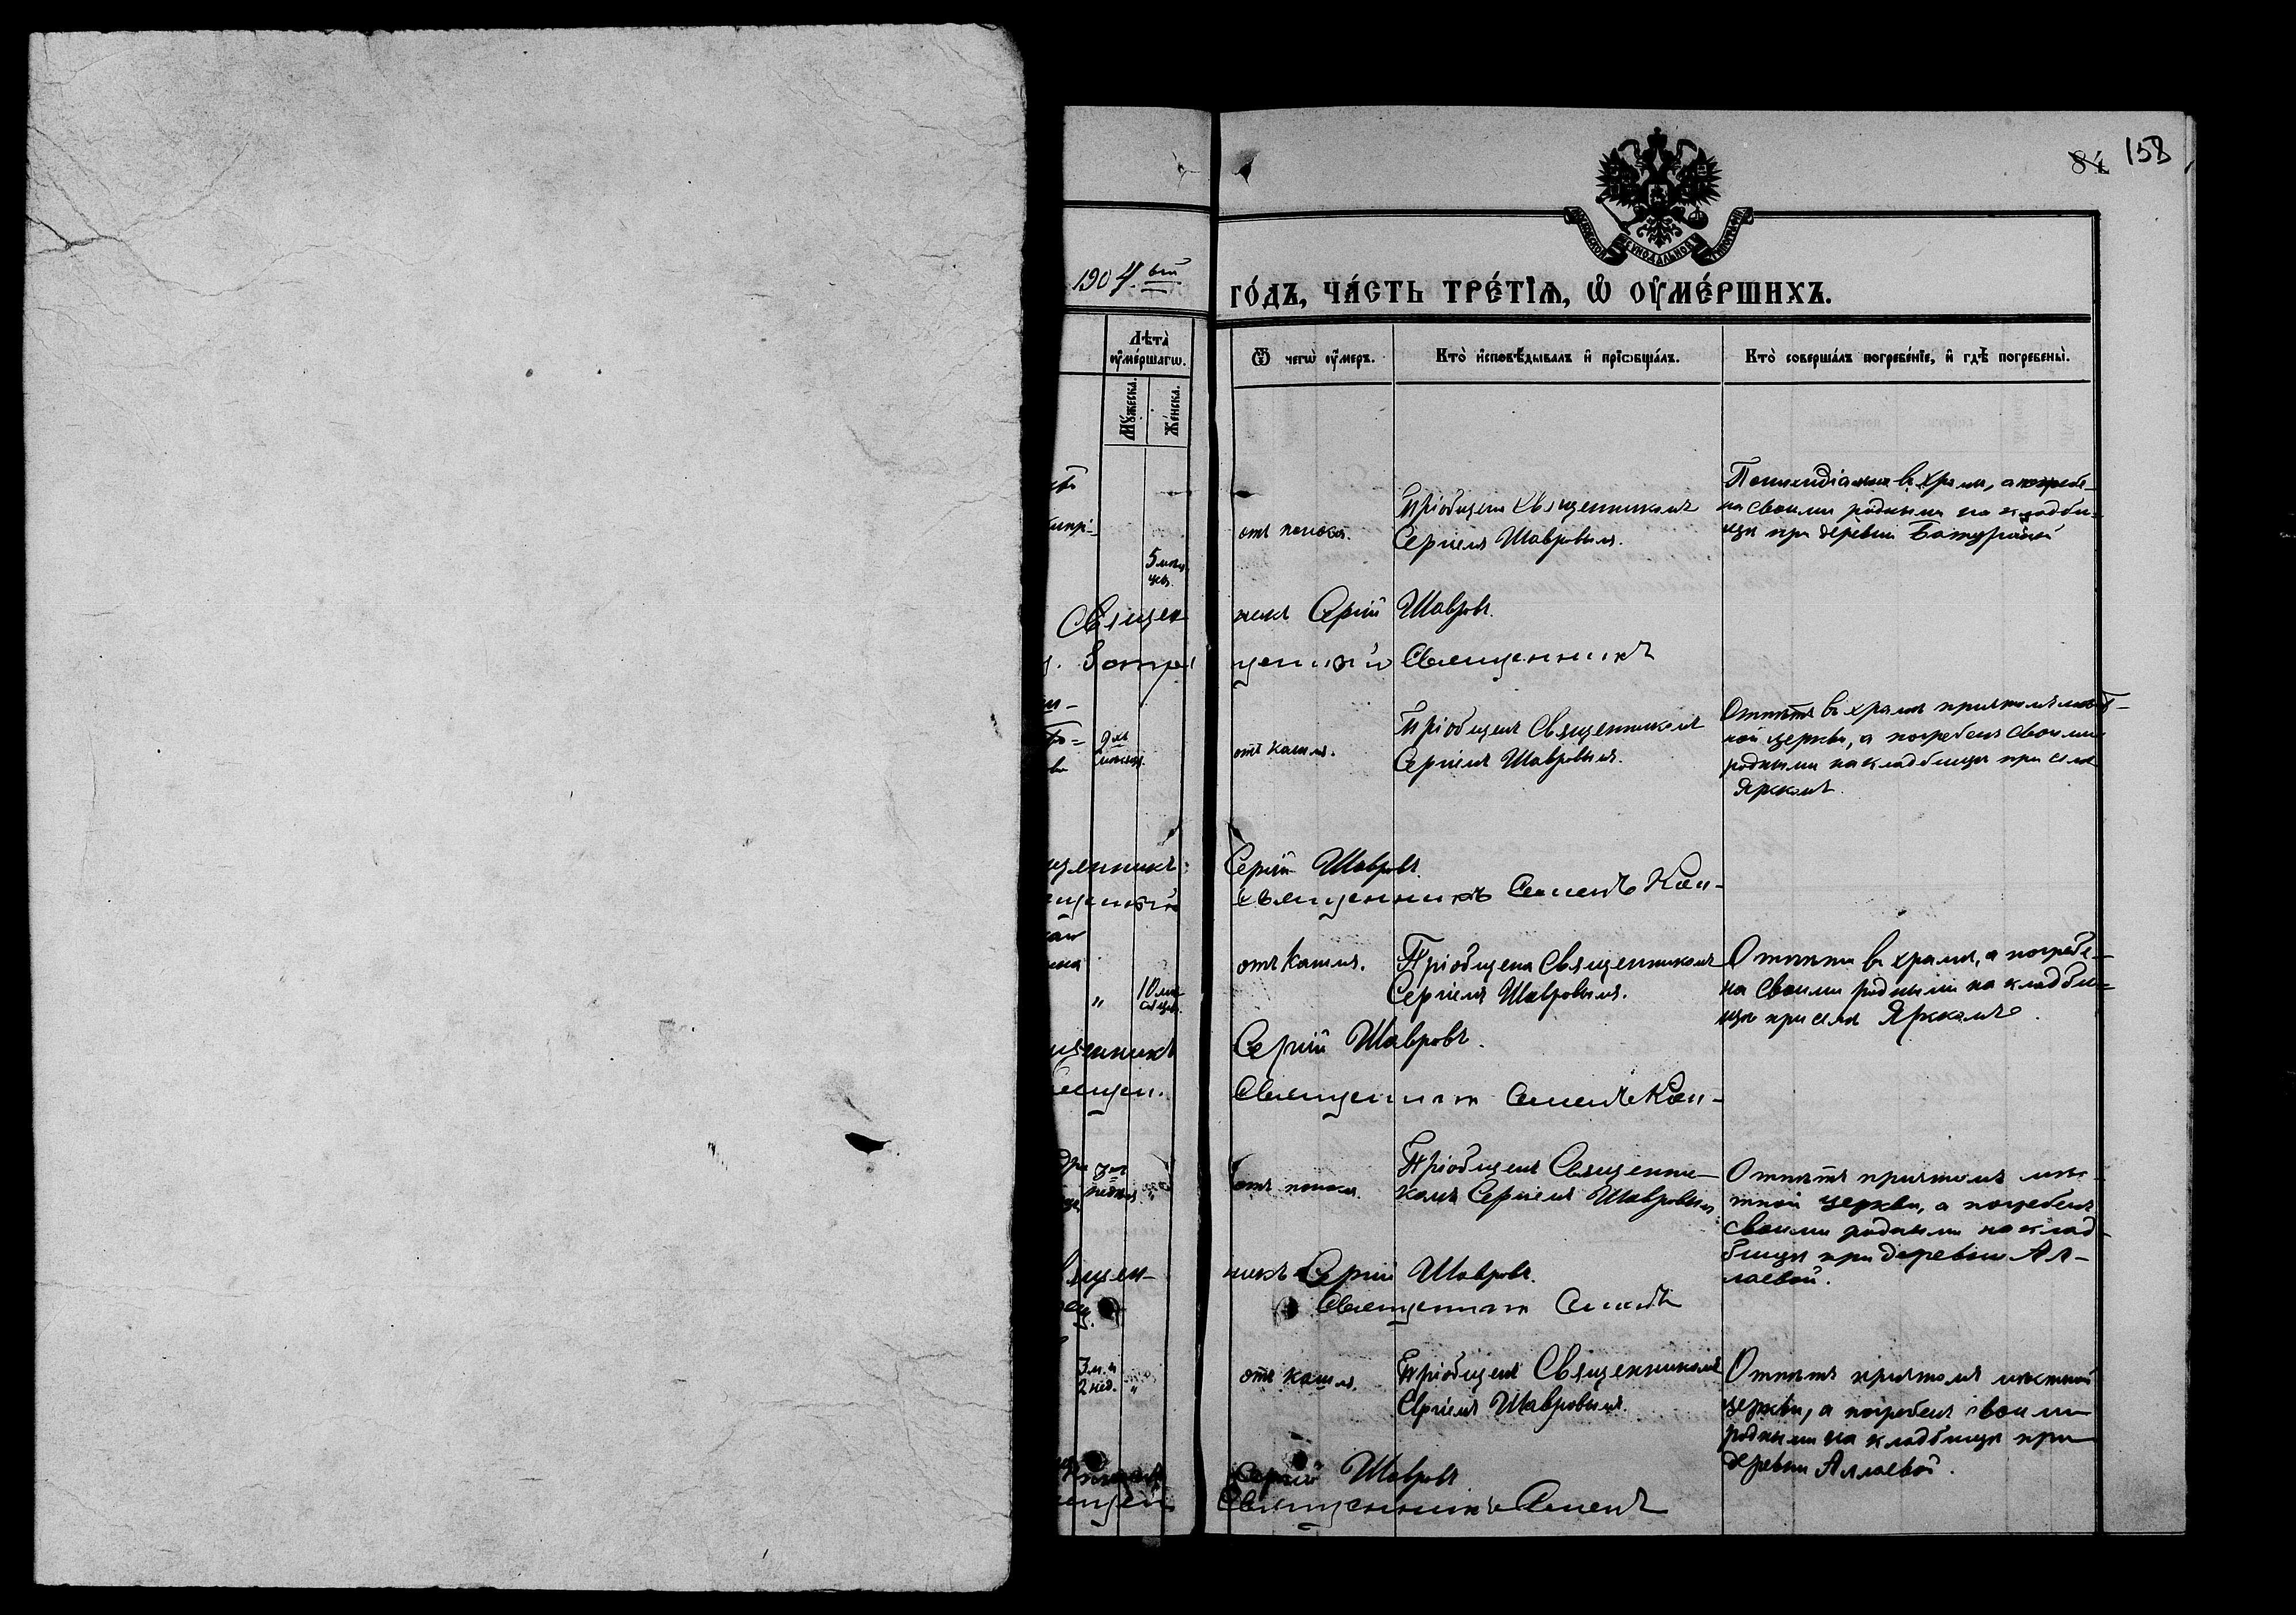 84 158
1904.ый
го́дъ, ча́сть тре́тїѧ, ѡ҆ ᲂу҆ме́ршихъ.
Лѣ́та ᲂу҆ме́ршагѡ.
Мꙋ́жеска.
Же́нска.
Ѿ чегѡ̀ ᲂу҆́меръ.
Кто̀ и҆сповѣ́дывалъ и҆ прїѡбща́лъ.
Кто̀ соверша́лъ погребе́нїе, и҆ гдѣ̀ погребены̀.
5 мѣся
цев.
отъ поноса.
Пріобщена Священникомъ
Сергіемъ Шавровымъ.
въ храмѣ, а погребе-
на своими родными на кладби-
щѣ при деревни
Священ
никъ Сергій Шавровъ.
Священникъ
отъ кашля.
Пріобщенъ Священникомъ
Сергіемъ Шавровымъ.
Отпѣтъ въ храмѣ причтомъ мѣст-
ной церкви, а погребенъ своими
родными на кладбищѣ при селѣ
Яркомъ.
щенникъ:
Сергій Шавровъ.
Священникъ Семенъ Кон-
10 мѣ
сяцев.
отъ кашля.
Пріобщена Священникомъ
Сергіемъ Шавровымъ.
Отпѣта въ храмѣ, а погребе-
на своими родными на кладби-
щѣ при селѣ Яркомъ.
щенникъ
Сергій Шавровъ.
Священникъ Семенъ Кон-
отъ поноса.
Пріобщенъ Священни-
комъ Сергіемъ Шавровымъ
Отпѣтъ причтомъ мѣс-
тной церкви, а погребенъ
своими родными на клад-
бищѣ при деревни Ал-
лаевой.
ящен-
никъ Сергій Шавровъ.
Священникъ Семенъ
3 м. и
2 нед. „
отъ кашля.
Пріобщенъ Священникомъ
Сергіемъ Шавровымъ.
Отпѣтъ причтомъ мѣстной
церкви, а погребенъ своими
родными на кладбищѣ при
деревни Аллаевой.
Сергій Шавровъ
Священникъ Семенъ